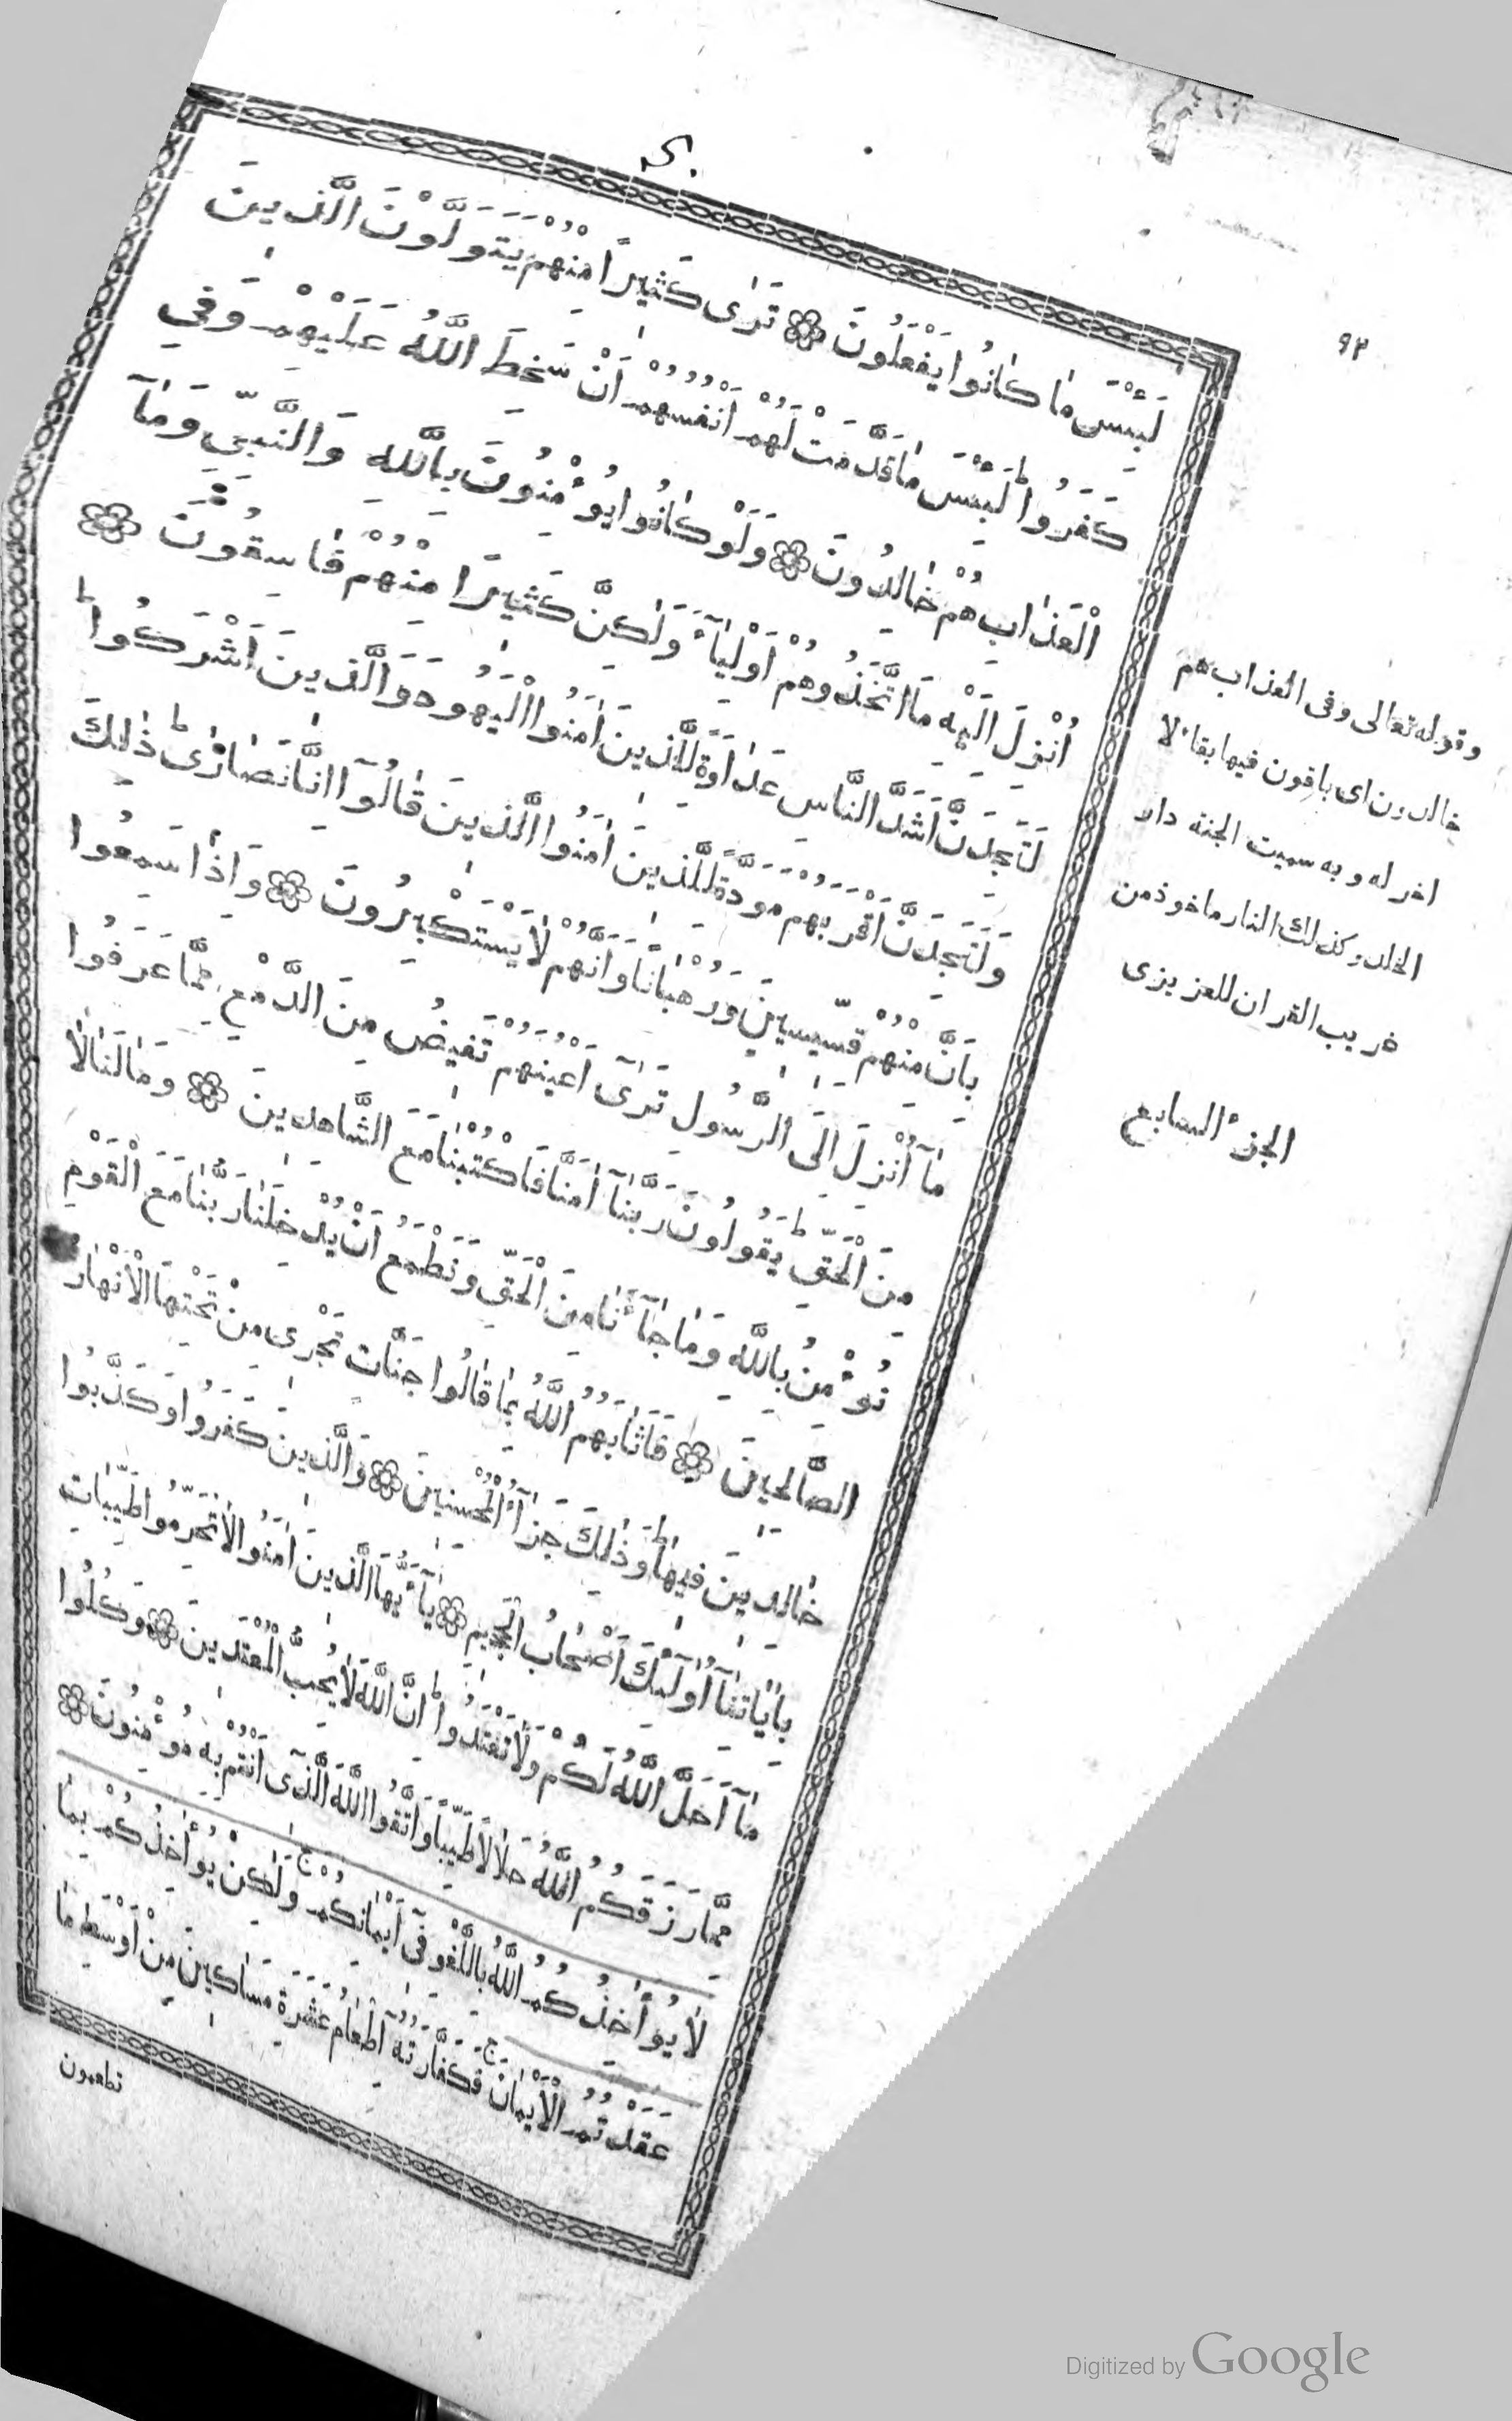 ٩٣
لَبِئْسَ مٰا كٰانُوا يَفْعَلُونَ ۞ تَرٰى كَثيِراً مِنْهُمْ يَتَوَلَّوْنَ الَّذيِنَ
كَفَرُواؕ لَبِئْسَ مٰا قَدَّمَتْ لَهُمْ أَنْفُسُهُمْ أَنْ سَخِطَ اللّٰهُ عَلَيْهِمْ وَفيِ
الْعَذٰابِ هُمْ خٰالِدُونَ ۞ وَلَوْ كٰانُوا يُوءْمِنُونَ بِاللّٰهِ وَالنَّبِىِّ وَمٰآ
أُنْزِلَ اِلَيْهِ مَا اتَّخَذُوهُمْ أَوْلِيٰآءَ وَلٰكِنَّ كَثيِرًا مِنْهُمْ فٰاسِقُونَ ۞
لَتَجِدَنَّ اَشَدَّ النَّاسِ عَدٰاوَةً لِلَّذيِنَ اٰمَنُوا الْيَهُودَ وَالَّذيِنَ اَشْرَكُواؕ
وَلَتَجِدَنَّ أَقْرَبَهُمْ مَوَدَّةً لِلَّذيِنَ اٰمَنُوا الَّذيِنَ قٰالُوآ اِنَّا نَصٰارٰىؕ ذٰلِكَ
بِاَنَّ مِنْهُمْ قِسّيِسيِنَ وَرُهْبٰانًا وَاَنَّهُمْ لٰا يَسْتَكْبِرُونَ ۞ وَاِذٰا سَمِعُوا
مٰآ أُنْزِلَ اِلَى الرَّسُولِ تَرٰىٓ اَعْيُنَهُمْ تَفيِضُ مِنَ الدَّمْعِ مِمَّا عَرَفُوا
مِنَ الْحَقِّؕ يَقُولُونَ رَبَّنٰآ اٰمَنَّا فَاكْتُبْنٰا مَعَ الشَّاهِديِنَ ۞ وَمٰا لَنٰا لاٰ
نُوءْمِنُ بِاللّٰهِ وَمٰا جٰآءَنٰا مِنَ الْحَقِّ وَنَطْمَعُ اَنْ يُدْخِلَنٰا رَبُّنٰا مَعَ الْقَوْمِ
الصَّالِحيِنَ ۞ فَاَثٰابَهُمُ اللّٰهُ بِمٰا قٰالُوا جَنَّات تَجْرِى مِنْ تَحْتِهَا الْاَنْهٰارُ
خٰالِديِنَ فيِهٰاؕ وَذٰلِكَ جَزٰآءُ الْمُحْسِنيِنَ ۞ وَالَّذيِنَ كَفَرُوا وَكَذَّبُوا
بِاٰيٰاتِنٰآ أُولٰٓئِكَ أَصْحٰابُ الْجَحيِمِ ۞ يٰآءَيُّهَا الَّذيِنَ اٰمَنُوا لاٰ تُحَرِّمُوا طَيِّبٰاتِ
مٰآ أَحَلَّ اللّٰهُ لَكُمْ وَلٰا تَعْتَدُواؕ اِنَّ اللّٰهَ لٰا يُحِبُّ الْمُعْتَديِنَ ۞ وَكُلُوا
مِمَّا رَزَقَكُمُ اللّٰهُ حَلٰالاً طَيِّباً وَاتَّقُوا اللّٰهَ الَّذىٓ اَنْتُمْ بِهِ مُوءْمِنُونَ ۞
لٰا يُوءَاخِذُكُمُ اللّٰهُ بِاللَّغْوِ فىٓ اَيْمٰانِكُمْ ج وَلٰكِنْ يُوءَاخِذُكُمْ بِمٰا
عَقَدْتُمُ الْأَيْمٰانَ ج فَكَفّٰارَتُهُ آ اِطْعٰامُ عَشَرَةِ مَسٰاكيِنَ مِنْ أَوْسَطِ مٰا
تطعمون
وقوله تعالى وفى العذاب هم
خالدون اى باقون فيها بقاء لا
اخر له وبه سميت الجنة دار
الخلد وكذلك النار ماخوذ من
غريب القران للعزيزى
الجزء السابع
Digitized by Google